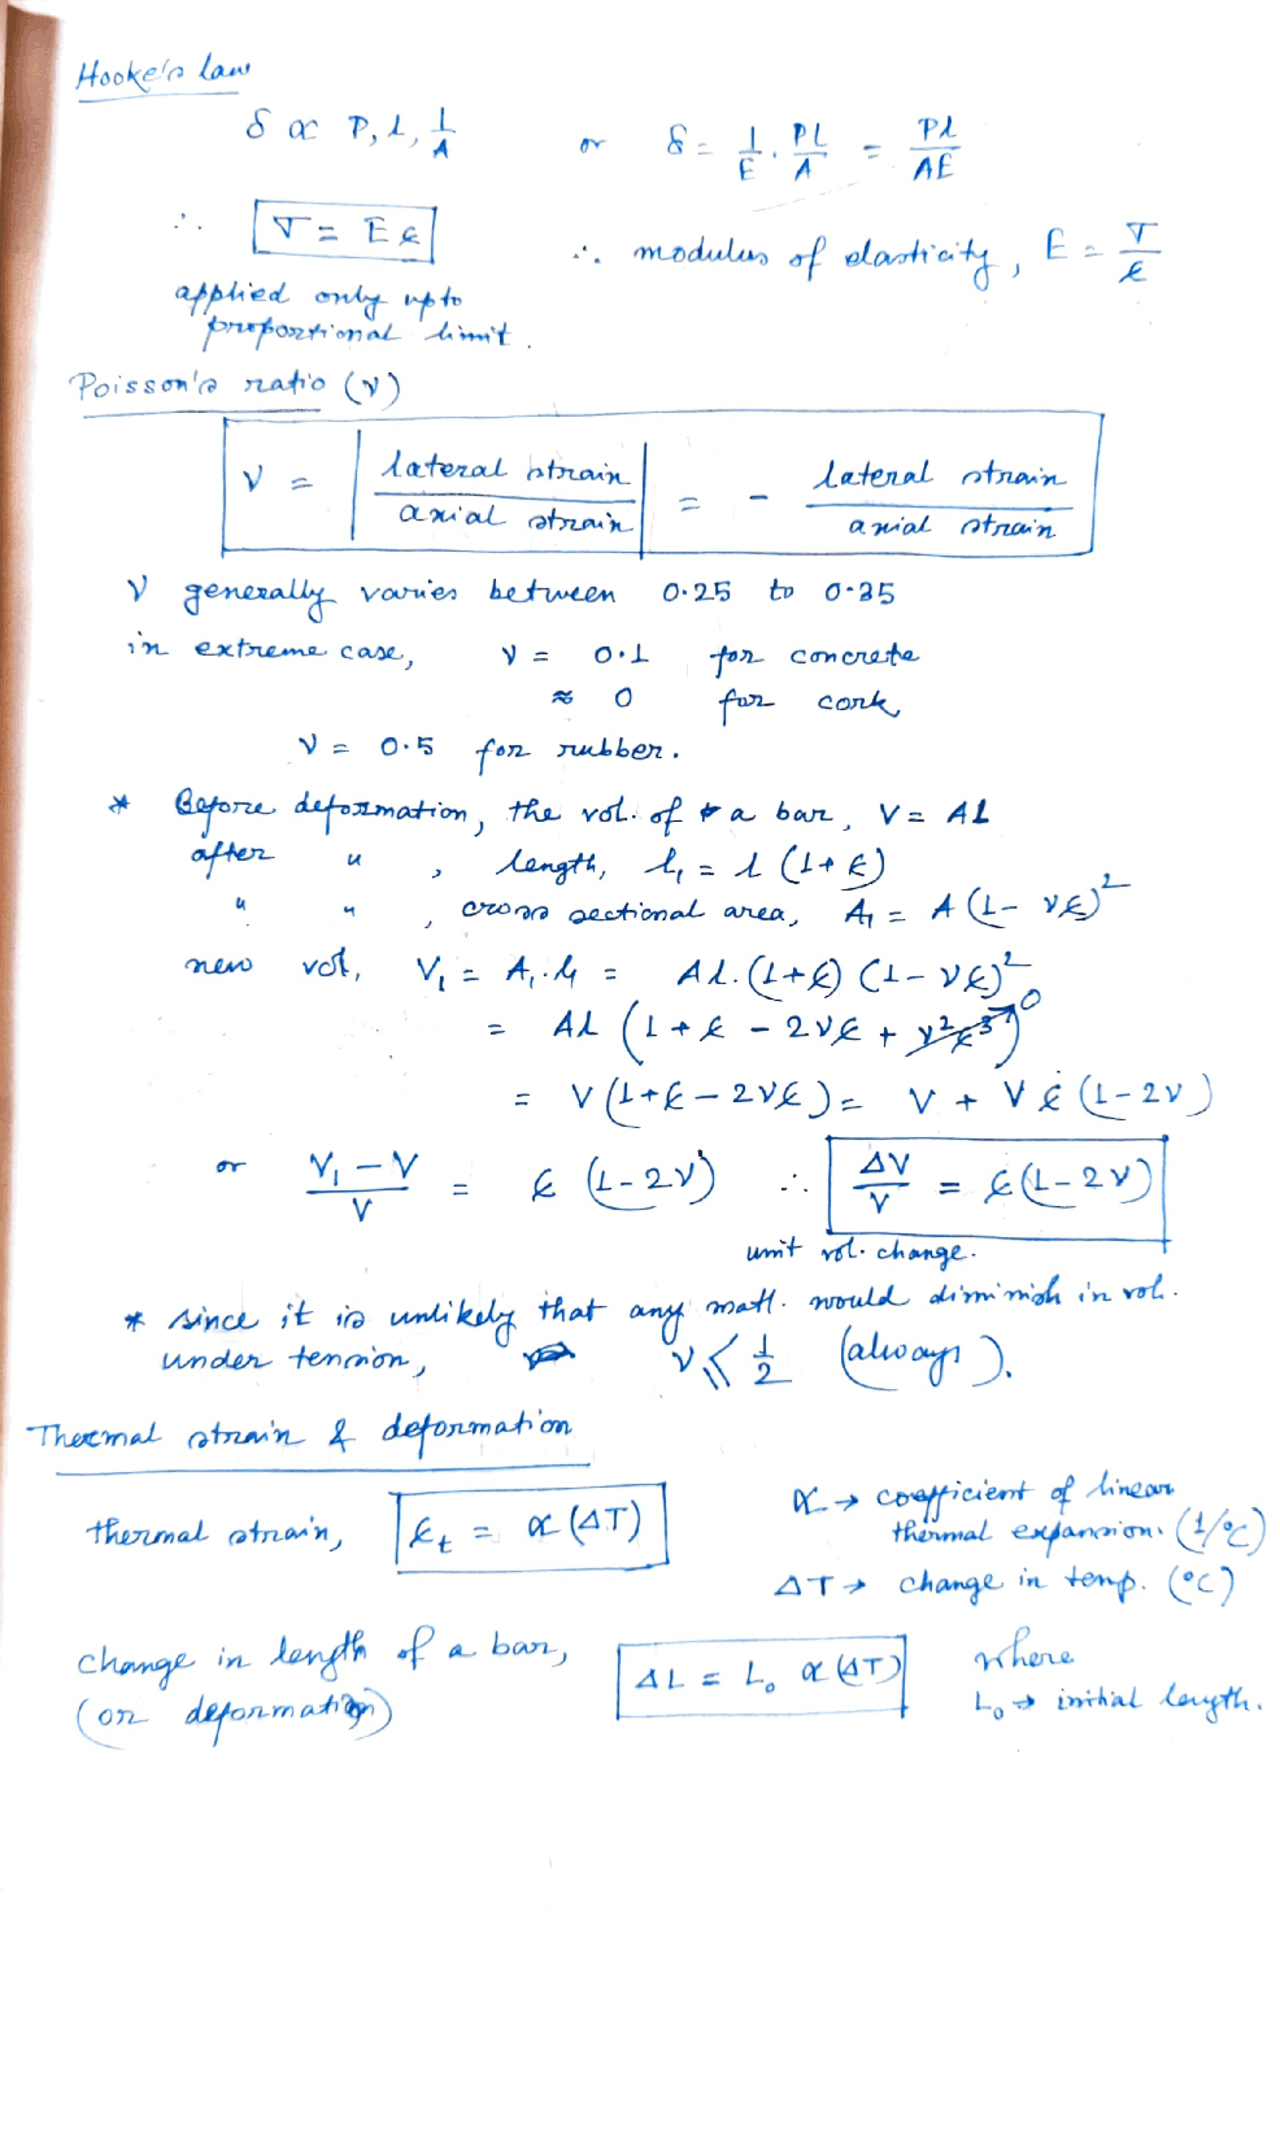 Hooke's law
δ ∝ P, L, 1/A or δ = 1/E · PL/A = PL/AE
∴ σ = E ε ∴ modulus of elasticity, E = σ/ε
applied only upto
proportional limit.
Poisson's ratio (ν)
ν = | lateral strain / axial strain | = - lateral strain / axial strain
ν generally varies between 0.25 to 0.35
in extreme case, ν = 0.1 for concrete
≈ 0 for cork
ν = 0.5 for rubber.
* Before deformation, the vol. of a bar, V = AL
after " , length, L₁ = L (1+ε)
" " , cross sectional area, A₁ = A (1- νε)²
new vol, V₁ = A₁.L₁ = AL.(1+ε) (1-νε)²
= AL (1 + ε - 2νε + ν²ε³) 0
= V (1+ε - 2νε) = V + Vε (1-2ν)
or (V₁ - V)/V = ε (1-2ν) ∴ ΔV/V = ε(1-2ν)
unit vol. change.
* since it is unlikely that any matl. would diminish in vol.
under tension, ν ≤ 1/2 (always).
Thermal strain & deformation
thermal strain, εt = α (ΔT) α → coefficient of linear
thermal expansion. (1/°C)
ΔT → change in temp. (°C)
change in length of a bar, ΔL = L₀ α (ΔT) where
(or deformation) L₀ → initial length.